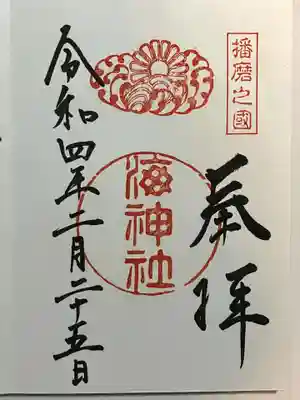 播磨之國
奉拝
海神社
令和四年二月二十五日